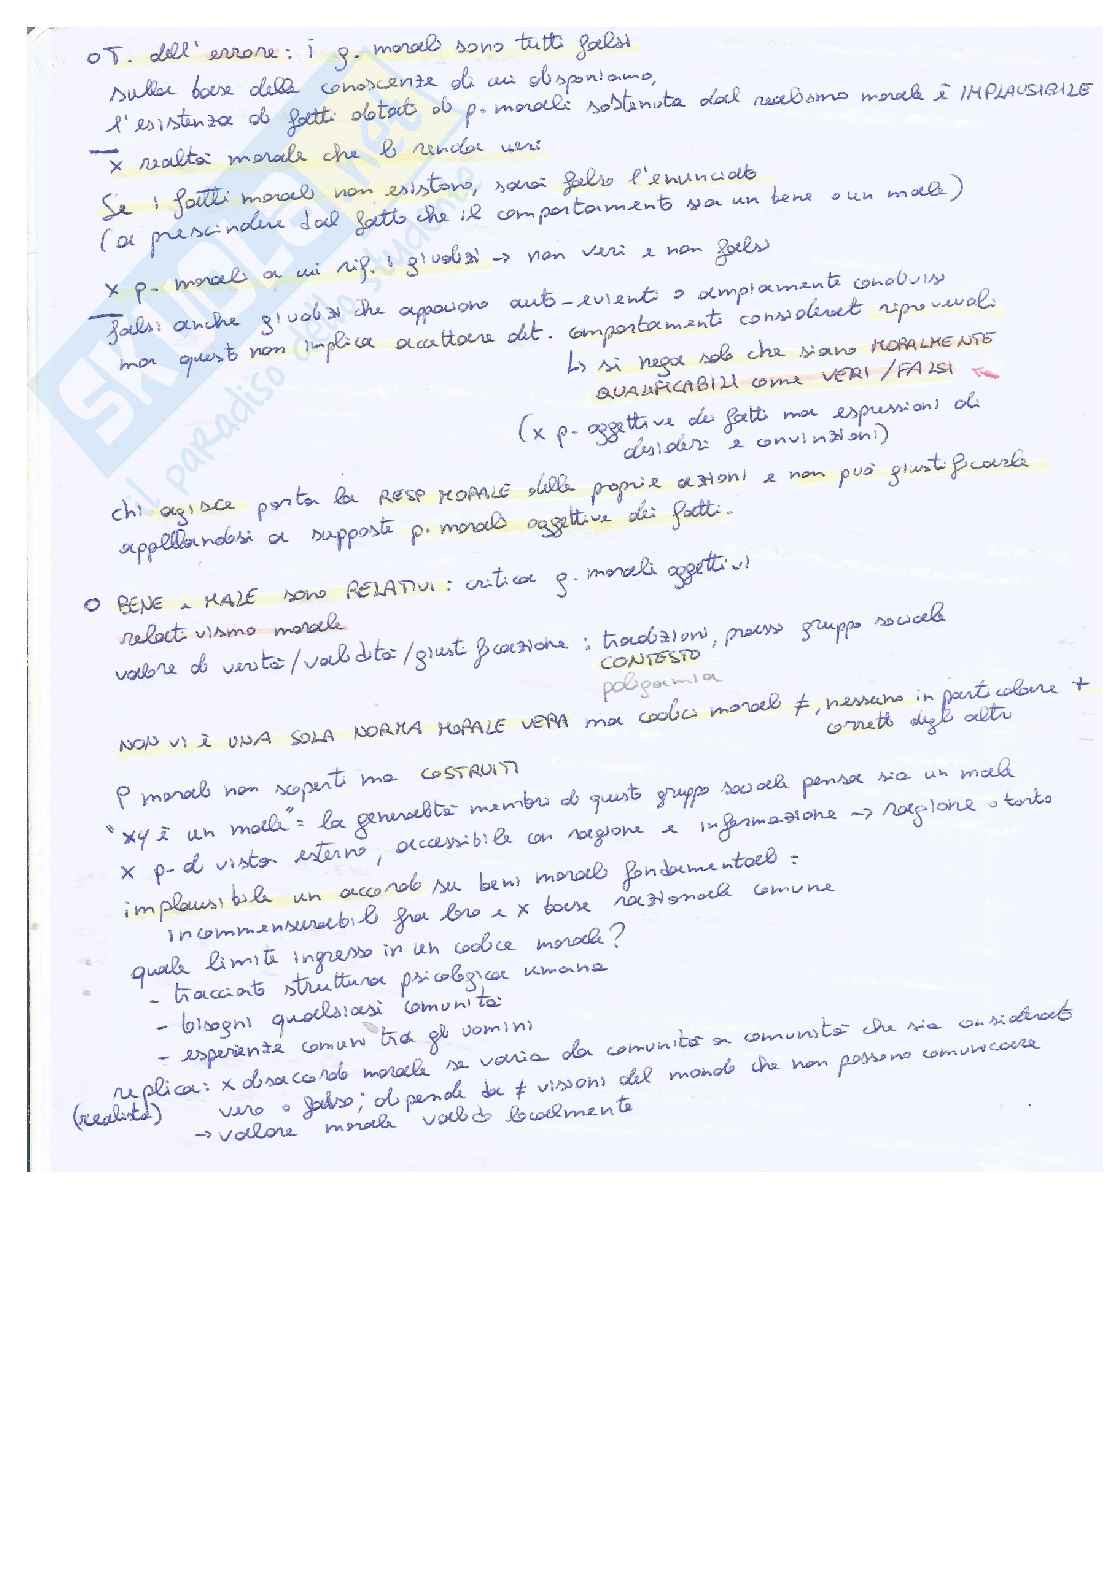 o T. dell'errore: i g. morali sono tutti falsi
sulla base delle conoscenze di cui disponiamo,
l'esistenza di fatti dotati di p. morali sostenuta dal realismo morale è IMPLAUSIBILE
x realtà morale che li renda veri
Se i fatti morali non esistono, sarà falso l'enunciato
(a prescindere dal fatto che il comportamento sia un bene o un male)
x p. morali a cui rif. i giudizi → non veri e non falsi
falsi anche giudizi che appaiono auto-evienti o ampiamente condivisi
ma questo non implica accettare det. comportamenti considerati riprovevoli
↳ si nega solo che siano MORALMENTE
QUALIFICABILI come VERI/FALSI
(x p. oggettive dei fatti ma espressioni di
desideri e convinzioni)
chi agisce porta la RESP MORALE delle proprie azioni e non può giustificarle
appellandosi a supposte p. morali oggettive dei fatti.
o BENE e MALE sono RELATIVI: critica g. morali oggettivi
relativismo morale
valore di verità/validità/giustificazione: tradizioni, prassi gruppo sociale
CONTESTO
poligamia
NON VI è UNA SOLA NORMA MORALE VERA ma codici morali ≠, nessuno in particolare +
corretti degli altri
P morali non scoperti ma COSTRUITI
"xy è un male" = la generalità membri di questo gruppo sociale pensa sia un male
x p. d vista esterno, accessibile con ragione e informazione → ragione o torto
implausibile un accordo su beni morali fondamentali =
incommensurabili fra loro e x base razionale comune
quale limite ingresso in un codice morale?
- tracciato struttura psicologica umana
- bisogni qualsiasi comunità
- esperienze comuni tra gli uomini
replica: x disaccordo morale se varia da comunità a comunità che sia considerato
(realista) vero o falso; dipende da ≠ visioni del mondo che non possono comunicare
→ valore morale valido localmente
SKUOLA.net
il paradiso dello studente